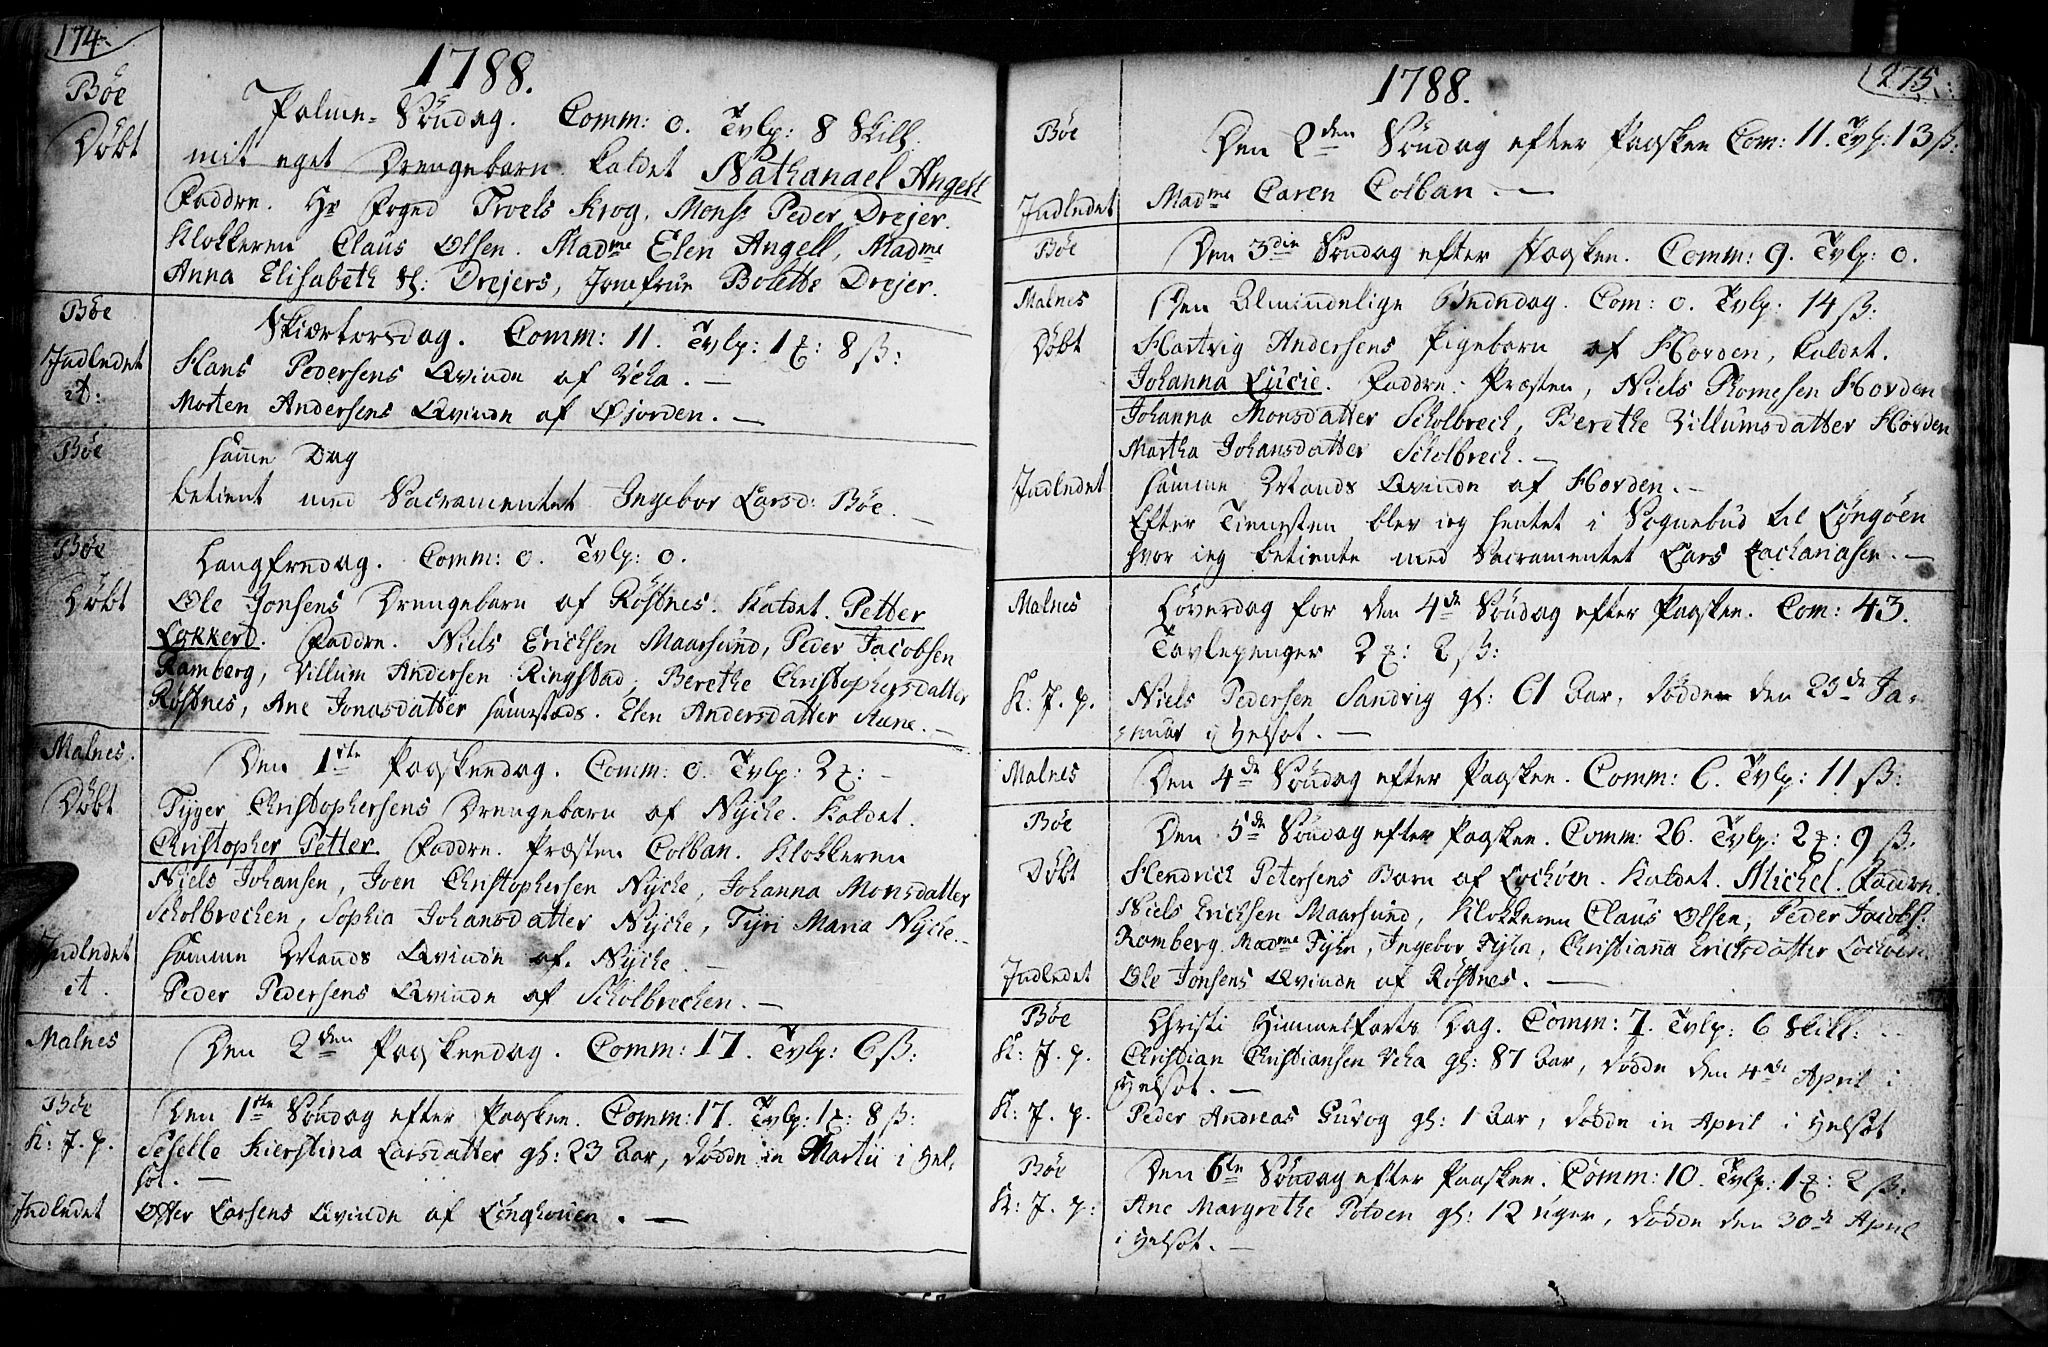 174.
1788.
Bøe
Palme-Søndag. Comm: 0. Tvlp: 8 Skill:
Døbt
mit eget Drengebarn kaldet Nathanael Angell
Faddre. Hr Foged Troels Krog, Monsr Peder Drejer.
Klokkeren Claus Olsen. Madme Elen Angell, Madme
Anna Elisabeth Sl: Drejers, Jomfrue Bolette Drejer.
Bøe
Skiærtorsdag. Comm: 11. Tvlp: 1 ʒ: 8 ß:
Indledet
Hans Pedersens Qvinde af Veha. —
it:
Morten Andersens Qvinde af Øjorden. —
Bøe
samme Dag
betient med Sacramentet Ingebor Larsd: Bøe. —
Bøe
Langfredag. Comm: 0. Tvlp: 0.
Døbt
Ole Jonsens Drengebarn af Røstnes. Kaldet. Petter
Lykkerd. Faddre. Niels Ericksen Maarsund, Peder Jacobsen
Ramberg, Villum Andersen Ringstad, Berethe Christophersdatter
Røstnes, Ane Jonasdatter sammestæds. Elen Andersdatter Stene. —
Malnes.
Den 1ste Paaskedag. Comm: 0. Tvlp: 2 ʒ: —
Døbt
Tyger Christophersens Drengebarn af Nycke. Kaldet.
Christopher Petter. Faddre. Præsten Colban. Klokkeren
Niels Johansen, Joen Christophersen Nycke, Johanna Monsdatter
Scholbrecken, Sophia Johansdatter Nycke, Tyri Maria Nycke. —
Indledet
samme Mands Qvinde af Nycke. —
it.
Peder Pedersens Qvinde af Scholbrecken. —
Malnes
Den 2den Paaskedag. Comm: 17. Tvlp: 6 ß:
Bøe
Den 1ste Søndag efter Paasken. Comm: 17. Tvlp: 1 ʒ: 8 ß:
K: J. p.
Seselle Kierstina Larsdatter gl: 23 Aar, døde in Martii i Hel-
sot. —
Indledet
Offer Larsens Qvinde af Lønghouen. —
275.
1788.
Bøe
Den 2den Søndag efter Paasken Com: 11. Tvlp: 13 ß:
Indledet
Madme Caren Colban. —
Bøe
Den 3die Søndag efter Paasken. Comm: 9. Tvlp: 0.
Malnes
Den Almindelige Bededag. Com: 0. Tvlp: 14 ß:
Døbt
Hartvig Andersens Pigebarn af Horden, kaldet.
Johanna Lucie. Faddre: Præsten, Niels Thomesen Horden
Johanna Monsdatter Scholbreck, Berethe Villumsdatter Horden
Martha Johansdatter Scholbreck. —
Indledet
samme Mands Qvinde af Horden. —
Efter Tienesten blev ieg hentet i Sognebud til Løngøen
hvor ieg betiente med Sacramentet Lars Zachariasen. —
Malnes
Løverdag for den 4de Søndag efter Paasken. Com: 43.
Tavlepenger 2 ʒ: 2 ß:
K: J. p.
Niels Pedersen Sandvig gl: 61 Aar, døde den 23de Ja-
nuar i Helsot. —
Malnes
Den 4de Søndag efter Paasken. Comm: 6. Tvlp: 11 ß:
Bøe
Den 5de Søndag efter Paasken. Comm: 26. Tvlp: 2 ʒ: 9 ß.
Døbt
Hendrick Petersens Barn af Lochøen. Kaldet. Michel. Faddre
Niels Ericksen Maarsund, Klokkeren Claus Olsen, Peder Jacobs:
Ramberg, Madme Fyhn, Ingebor Fyhn, Christiana Ericksdatter Lochøen
Indledet
Ole Jonsens Qvinde af Røstnes. —
Bøe
Christi Himmelfarts Dag. Comm: 7. Tvlp: 6 Skill:
K: J. p.
Christian Christiansen Veha gl: 87 Aar, døde den 4de April i
Helsot. —
K: J. p.
Peder Andreas Guvog gl: 1 Aar, døde in April i Helsot
Bøe
Den 6te Søndag efter Paasken. Comm: 10. Tvlp: 1 ʒ: 2 ß:
K: J. p:
Ane Margrethe Potden gl: 12 uger, døde den 30de April
i Helsot. —